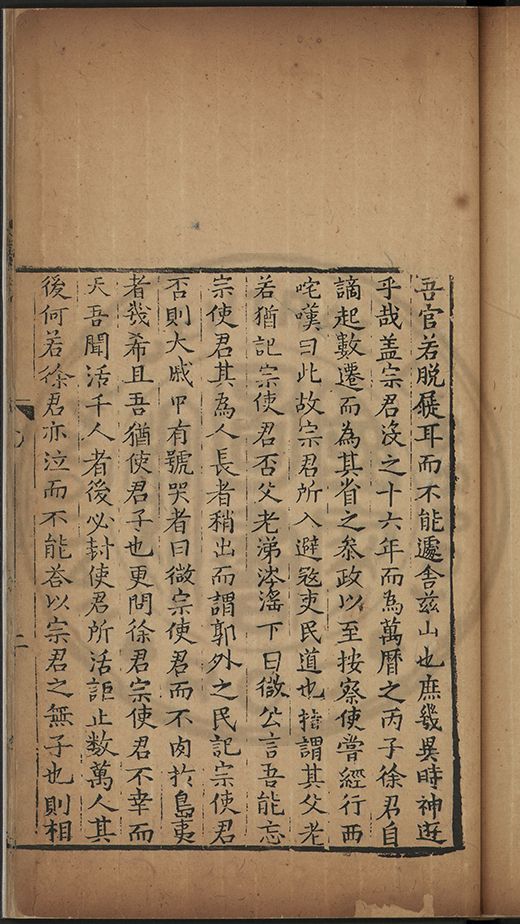 吾官若脫屣耳而不能遽舍茲山也庶幾異時神遊
乎哉盖宗君沒之十六年而為萬曆之丙子徐君自
謫起數遷而為其省之叅政以至按察使嘗經行西
咤嘆曰此故宗君所入避冦吏民道也指謂其父老
若猶記宗使君否父老涕涔滛下曰微公言吾能忘
宗使君其為人長者稍出而謂郭外之民記宗使君
否則大戚中有號哭者曰微宗使君而不肉扵島夷
者幾希且吾猶使君子也更問徐君宗使君不幸而
夭吾聞活千人者後必封使君所活詎止数萬人其
後何若徐君亦泣而不能荅以宗君之無子也則相
二